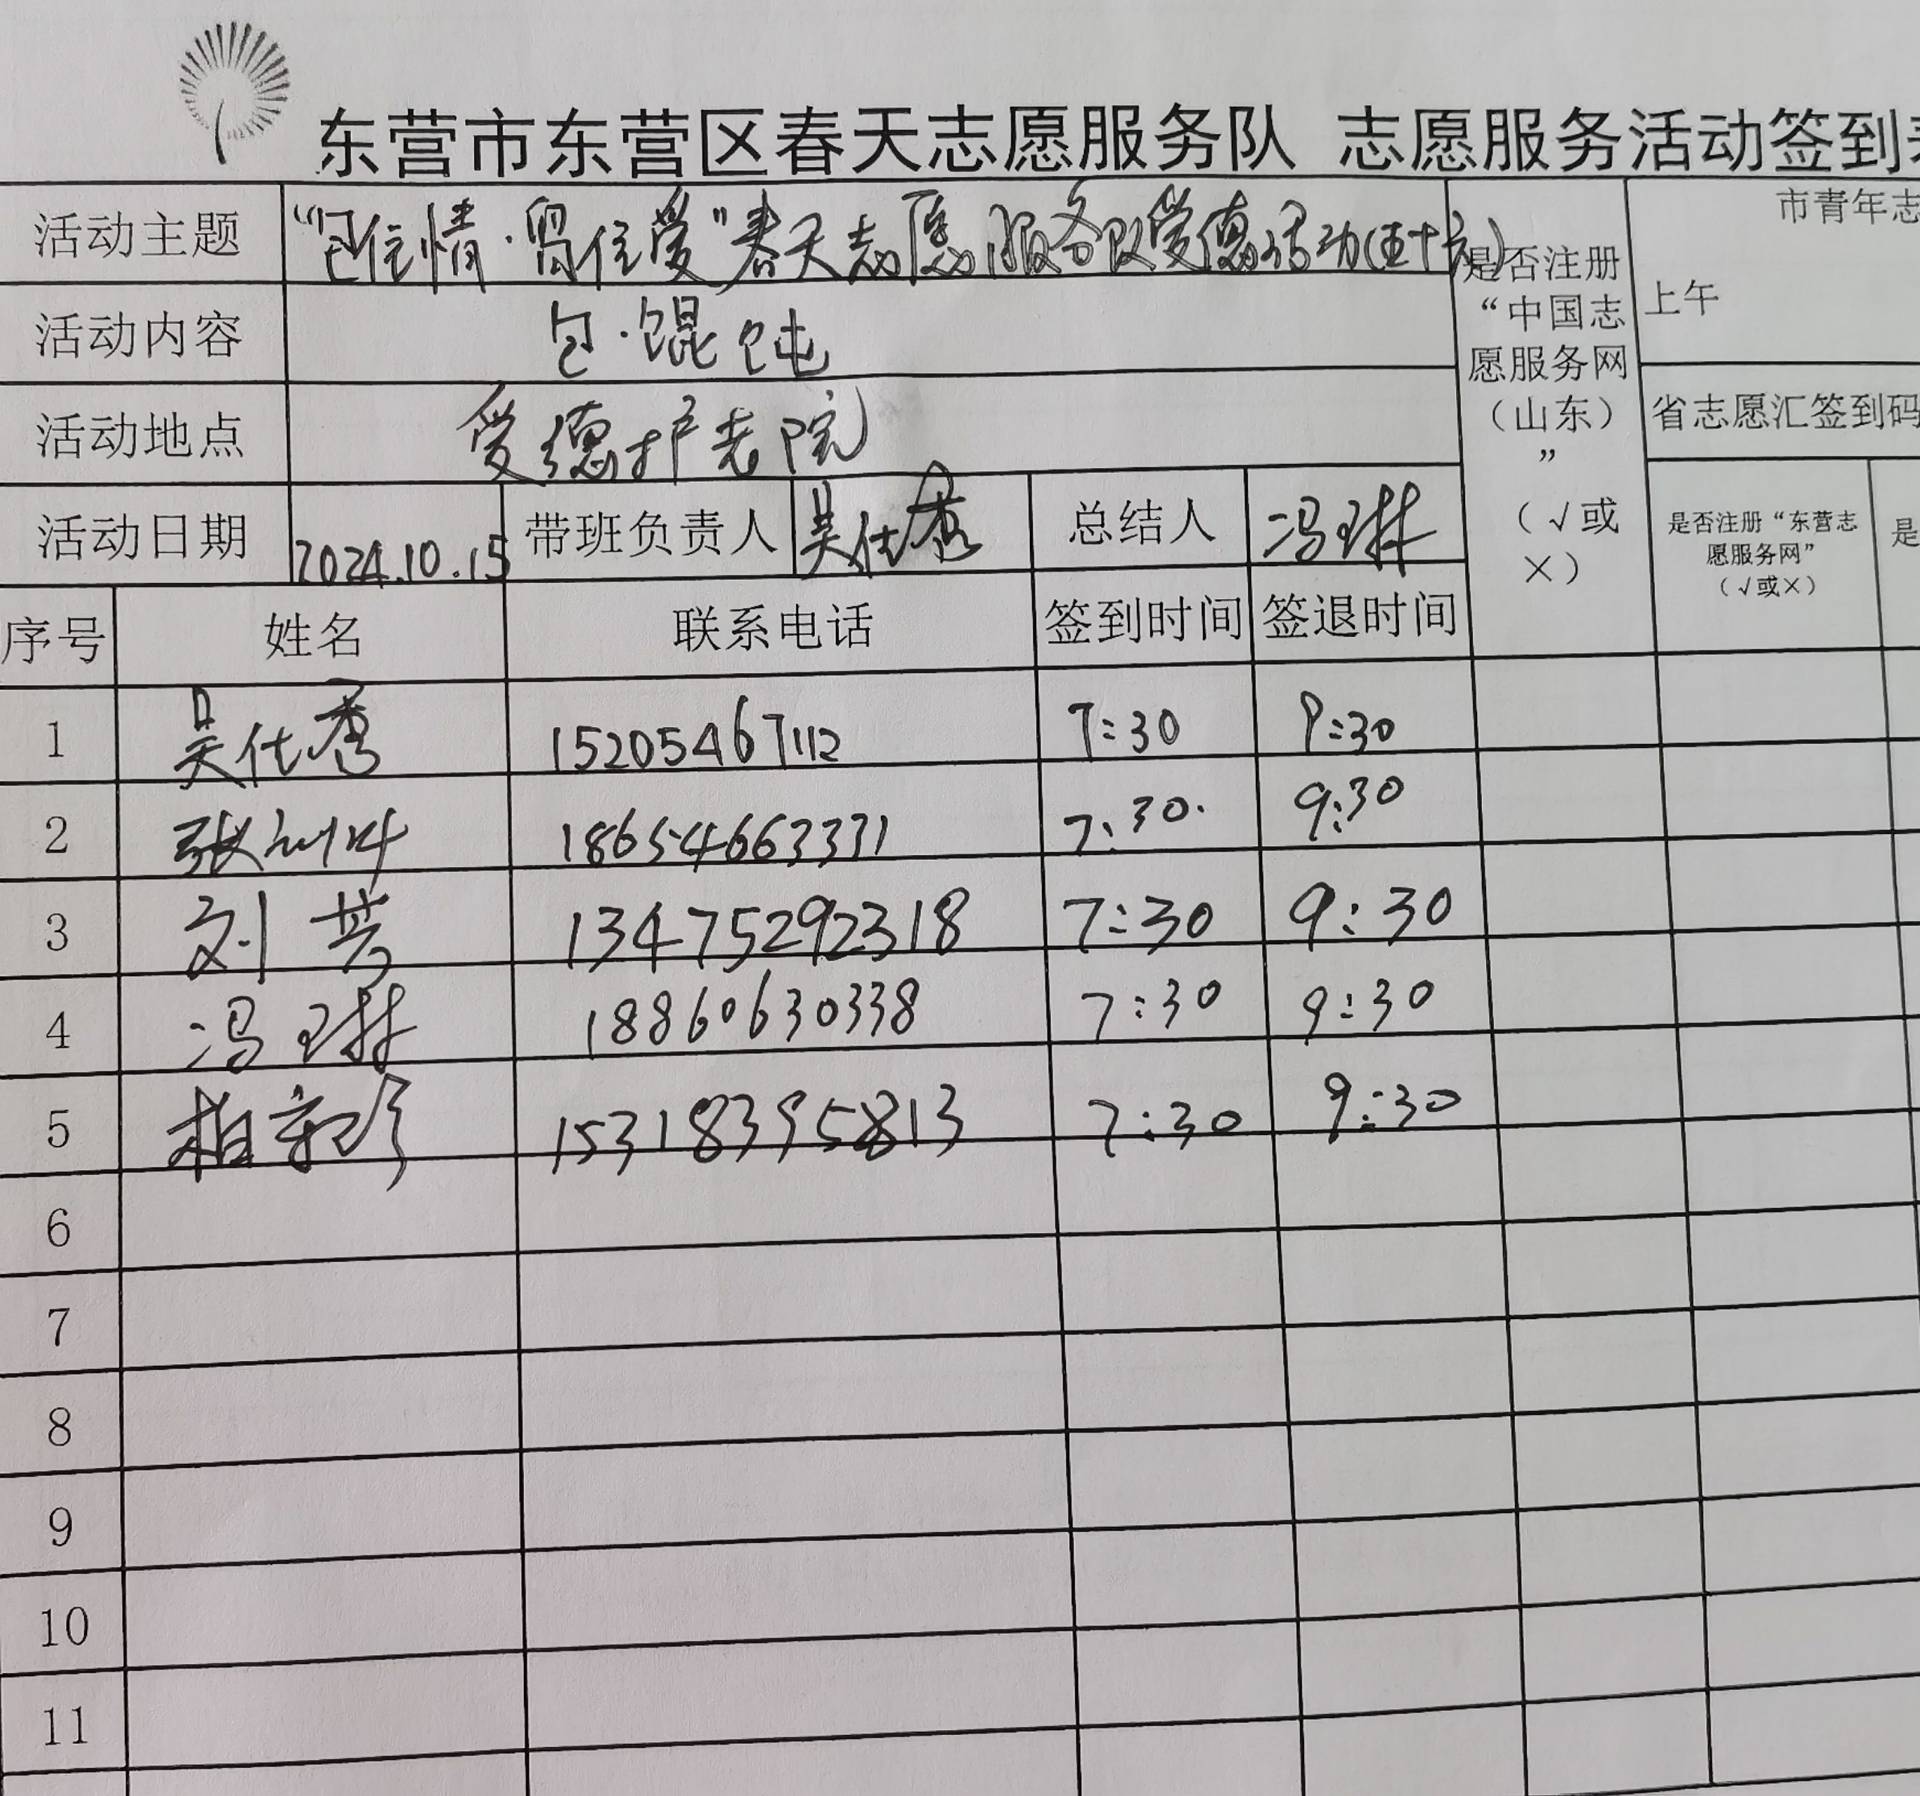 东营市东营区春天志愿服务队 志愿服务活动签到
活动主题 “包住情·留住爱”春天志愿服务队爱德活动(五十六)
活动内容 包·馄饨
活动地点 爱德护老院
活动日期 2024.10.15 带班负责人 吴仕秀 总结人 冯琳
是否注册
“中国志
愿服务网
（山东）
”
（√或
×）
市青年志
上午
省志愿汇签到码
是否注册“东营志
愿服务网”
（√或×）
是
序号 姓名 联系电话 签到时间 签退时间
1 吴仕秀 15205467112 7:30 9:30
2 张 18654663331 7:30. 9:30
3 刘芳 13475292318 7:30 9:30
4 冯琳 18860630338 7:30 9:30
5 15318395813 7:30 9:30
6
7
8
9
10
11